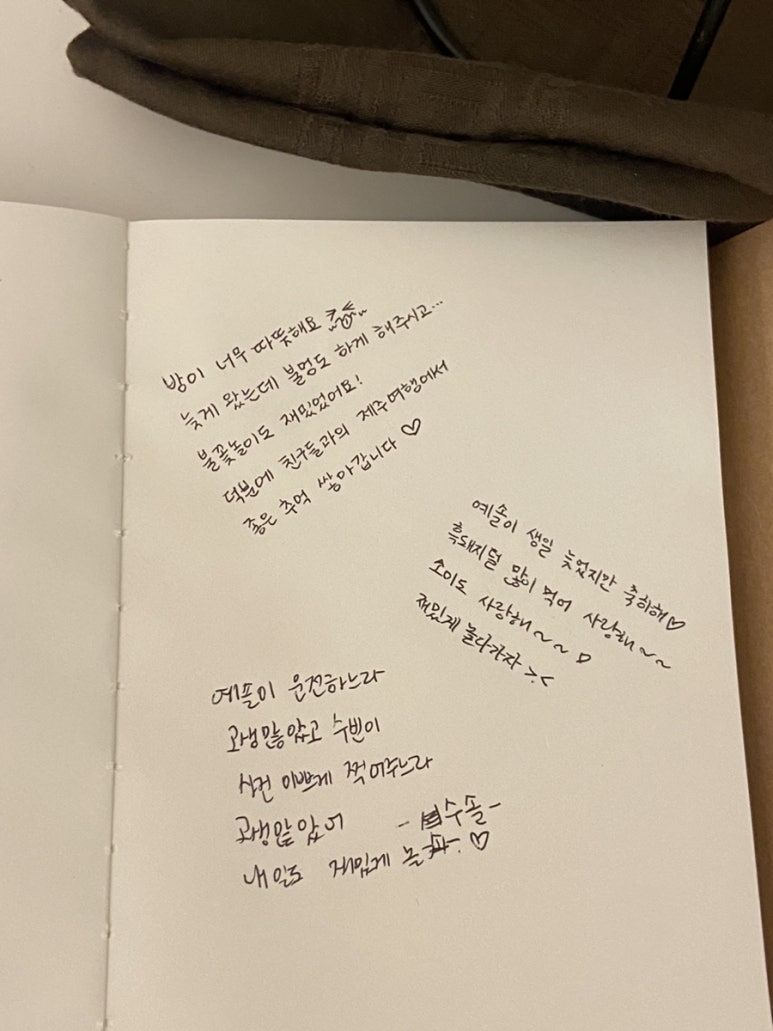 방이 너무 따뜻해요
늦게 왔는데 불멍도 하게 해주시고...
불꽃놀이도 재밌었어요!
덕분에 친구들과의 제주여행에서
좋은 추억 쌓아갑니다 ♡
예솔이 생일 늦었지만 축하해♡
흑돼지덜 많이 먹어 사랑해~~
소이도 사랑해~~♡
재밌게 놀다가자 >.<
예솔이 운전하느라
고생많았고 수빈이
사진 이쁘게 찍어주느라
고생많았어
-수솔-
내일도 재밌게 놀 ♡